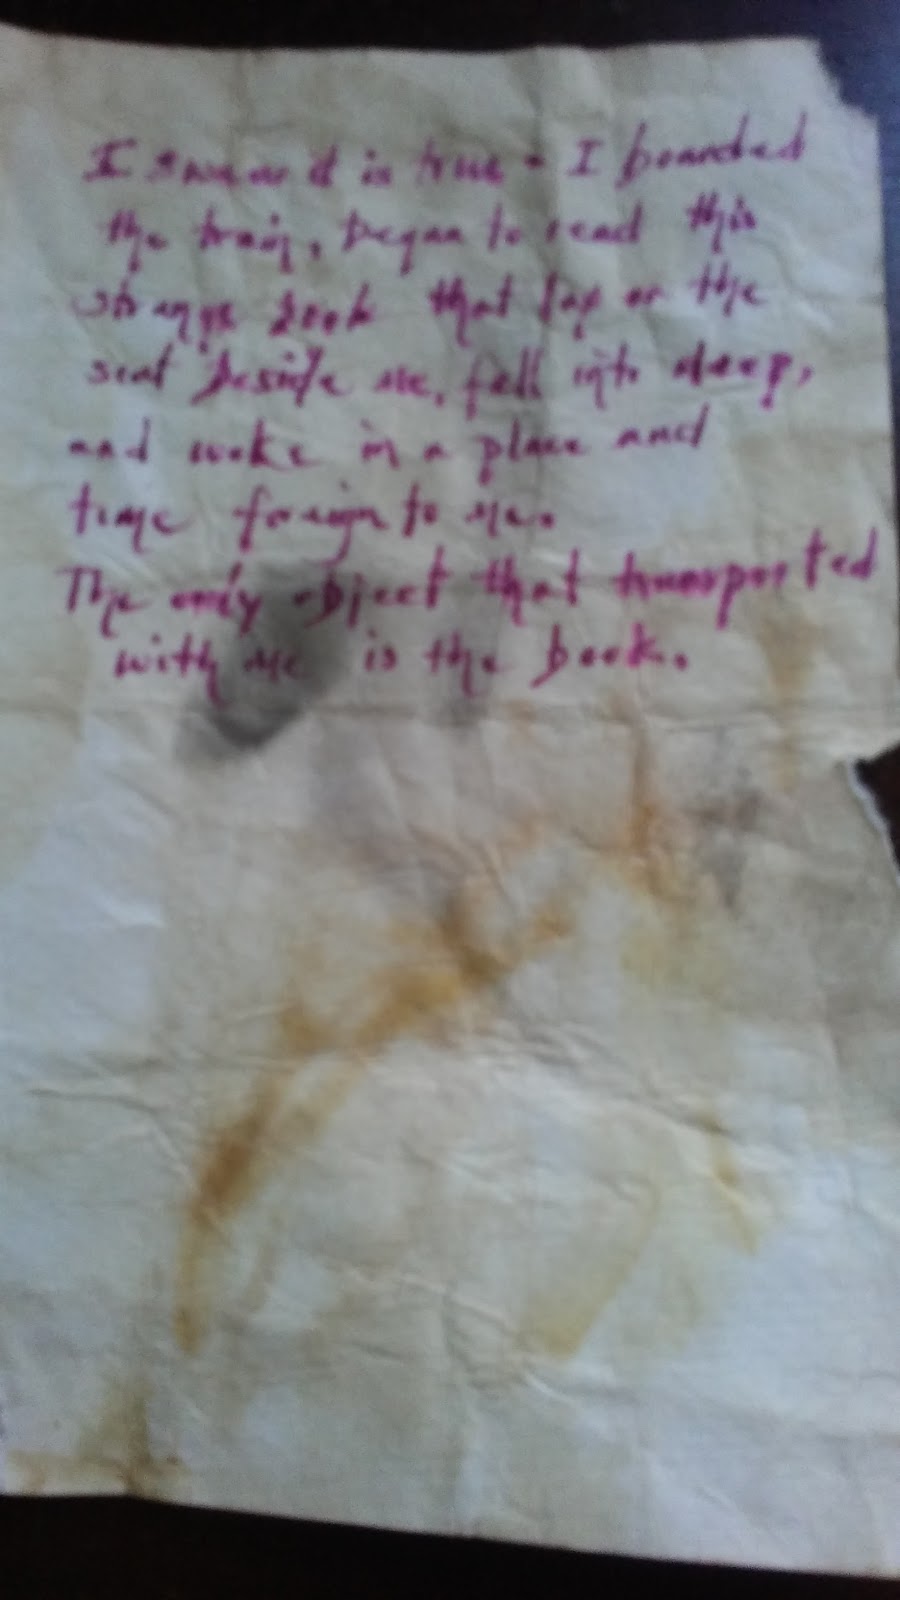 I swear it is true - I boarded
the train, began to read this
strange book that lay on the
seat beside me, fell into sleep,
and woke in a place and
time foreign to me.
The only object that transported
with me is the book.